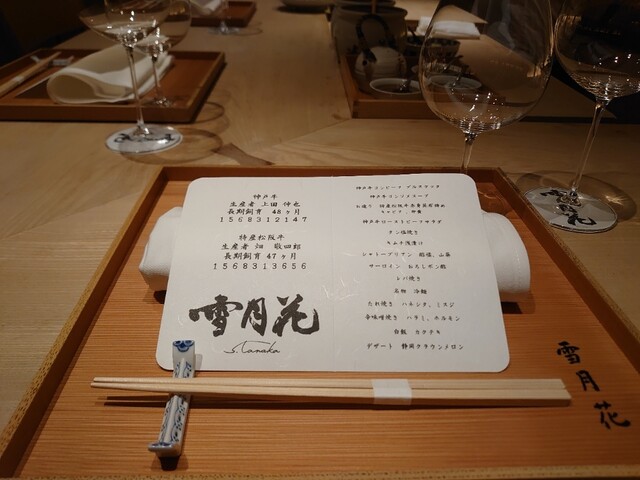 神戸牛
生産者 上田 伸也
長期飼育 48ヶ月
1568312147
特産松阪牛
生産者 畑 敬四郎
長期飼育 47ヶ月
1568313656
雪月花
S.Tanaka
神戸牛コンビーフ ブルスケッタ
神戸牛コンソメスープ
お造り 特産松阪牛
キャビア
神戸牛ローストビーフサラダ
タン塩焼き
キムチ浅漬け
シャトーブリアン
サーロイン おろしポン酢
レバ焼き
冷麺
たれ焼き ハネシタ、ミスジ
辛味噌焼き ハラミ、ホルモン
白飯 カクテキ
デザート 静岡クラウンメロン
雪月花